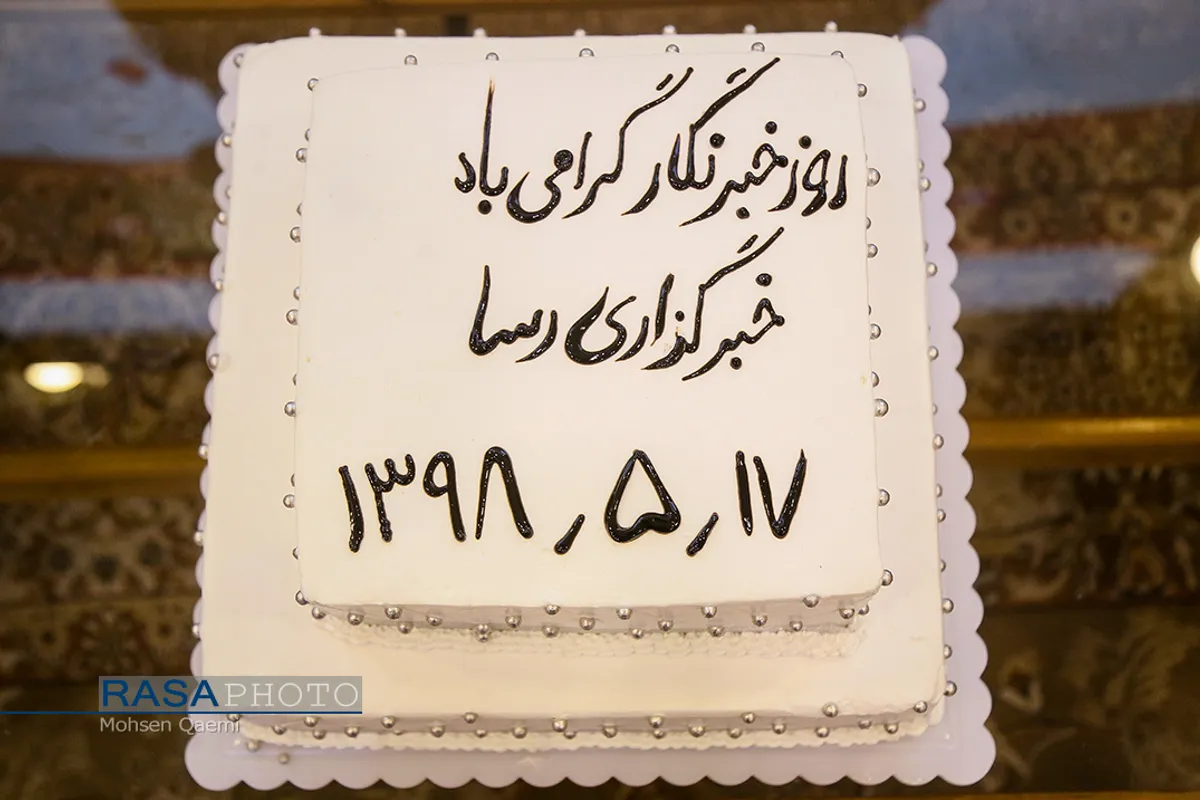 روز خبرنگار گرامی باد
خبرگزاری رسا
۱۳۹۸٫۵٫۱۷
RASAPHOTO
Mohsen Qaemi